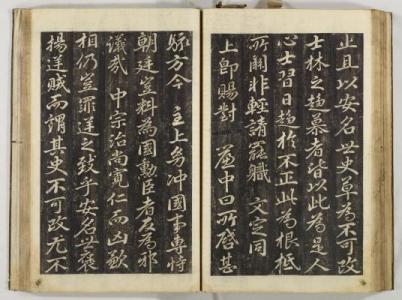 止且以安名世史草為不可改
士林之趨慕者皆以此為是人
心士習日趍於不正此為根柢
所關非輕請罷職 文定同
上即賜對 簾中曰所啓甚
駭方今 主上幼冲國事專恃
朝廷豈料為國勳臣者反為邪
議哉 中宗治尚寬仁而凶歉
相仍豈罪逆之致乎安名世褒
揚逆賊而謂其史不可改尤不